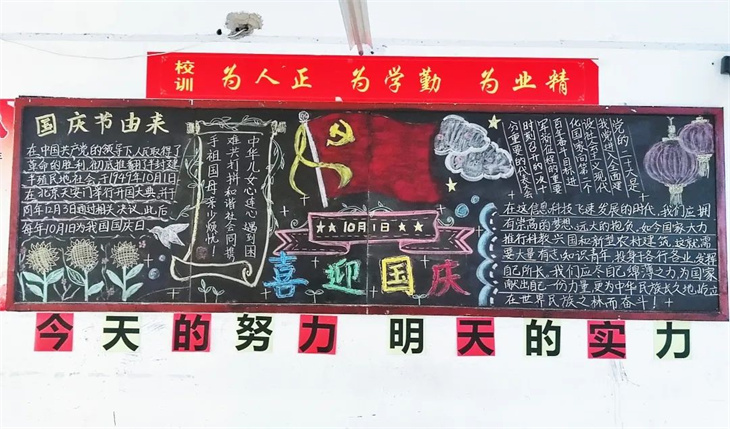 校训
为人正 为学勤 为业精
国庆节由来
在中国共产党的领导下人民取得了
革命的胜利,彻底推翻了半封建
半殖民地社会,于1949年10月1日
在北京天安门举行开国大典,并于
同年12月3日通过相关决议,此后
每年10月1日为我国国庆日
中华儿女心连心遇到困
难共打拼和谐社会同携
手祖国母亲少烦忧!
10月1日
喜迎国庆
党的二十大是
我党进入全面建
设社会主义现代
化国家向第二个
百年奋斗目标进
军新征程的重要
时刻召开的一次十
分重要的代表大会
在这信息科技飞速发展的时代,我们应拥
有崇高的梦想,远大的抱负,如今国家大力
推行科教兴国和新型农村建筑,这就需
要大量有志知识青年投身于各行各业发挥
自己所长,我们应尽自己绵薄之力,为国家
献出自己一份力量,更为中华民族长久地屹立
在世界民族之林而奋斗!
今天的努力 明天的实力